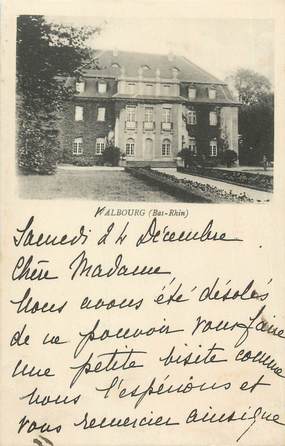 WALBOURG (Bas-Rhin)
Samedi 24 Décembre
Chère Madame
Nous avons été désolés
de ne pouvoir vous faire
une petite visite comme
nous l'espérions et
vous remercier ainsi que